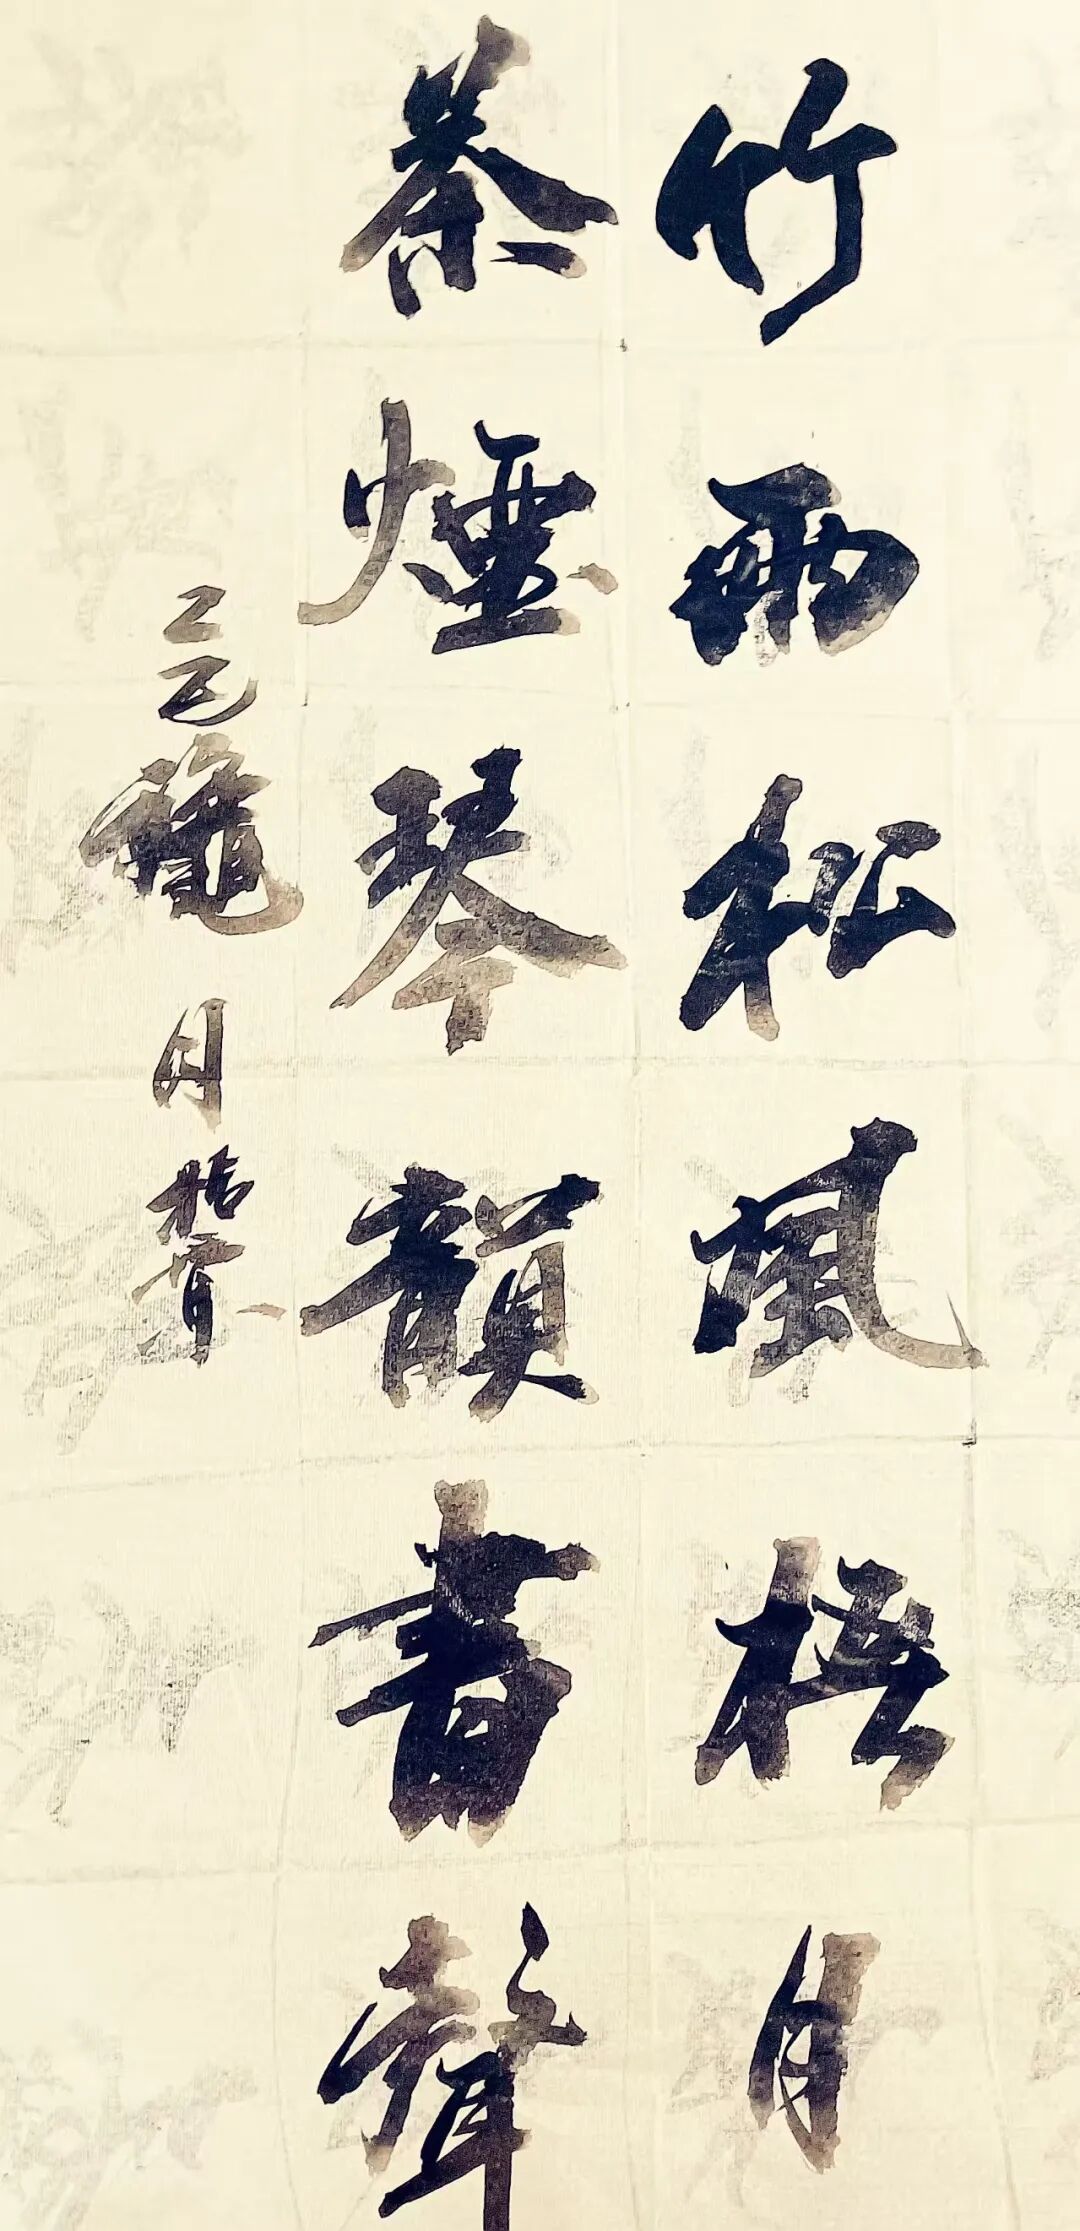 竹雨松風梧月
茶煙琴韻書聲
乙巳 月